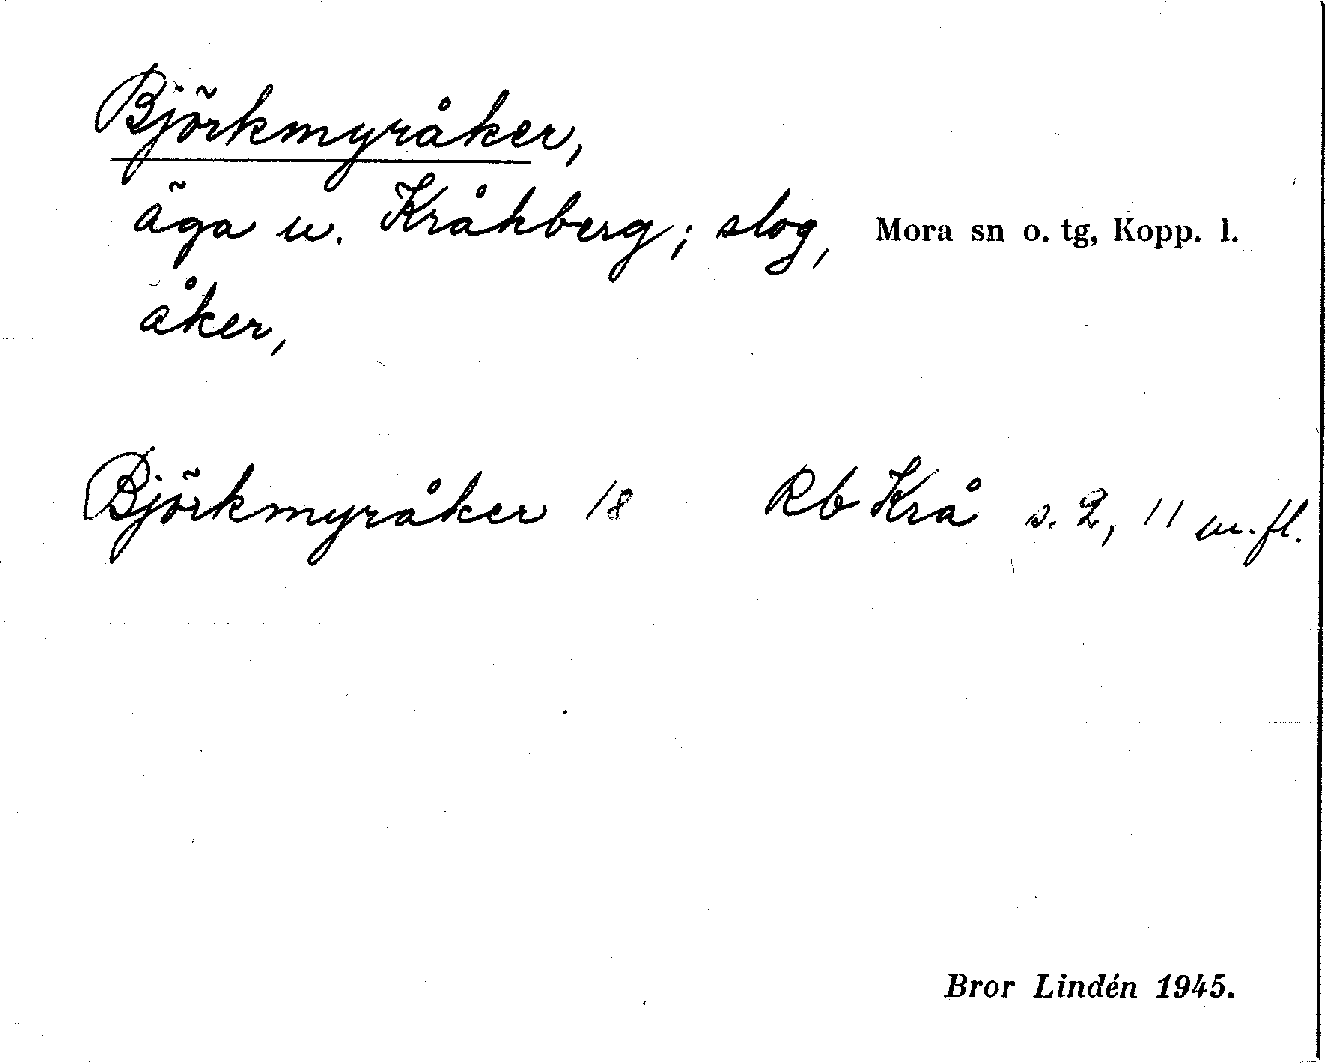 Björkmyråker,
äga u. Kråkberg; slog, Mora sn o. tg, Kopp. l.
åker,
Björkmyråker 18 Rb Krå s. 2, 11 m. fl.
Bror Lindén 1945.